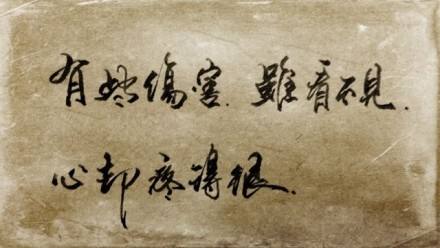 有些傷害.雖看不見.
心却疼得很.